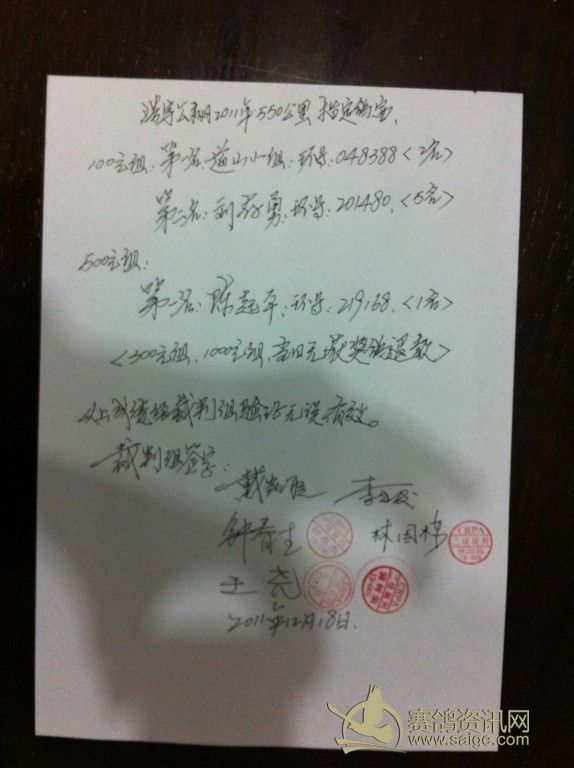 浩宇公棚2011年550公里指定鸽赛、
100元组:第一名:道山小组:环号:048388<2名>
第二名:利孙勇:环号:201480、<5名>
500元组:
第一名:陈起平:环号:219168.<1名>
<300元组、1000元组、当日无获奖鸽退款>
以上成绩经裁判组验证无误,有效。
裁判组签字:
戴 李
钟春生 林国栋
CRPA
王尧
CRPA
2011年12月18日.
赛鸽资讯网
www.saige.com